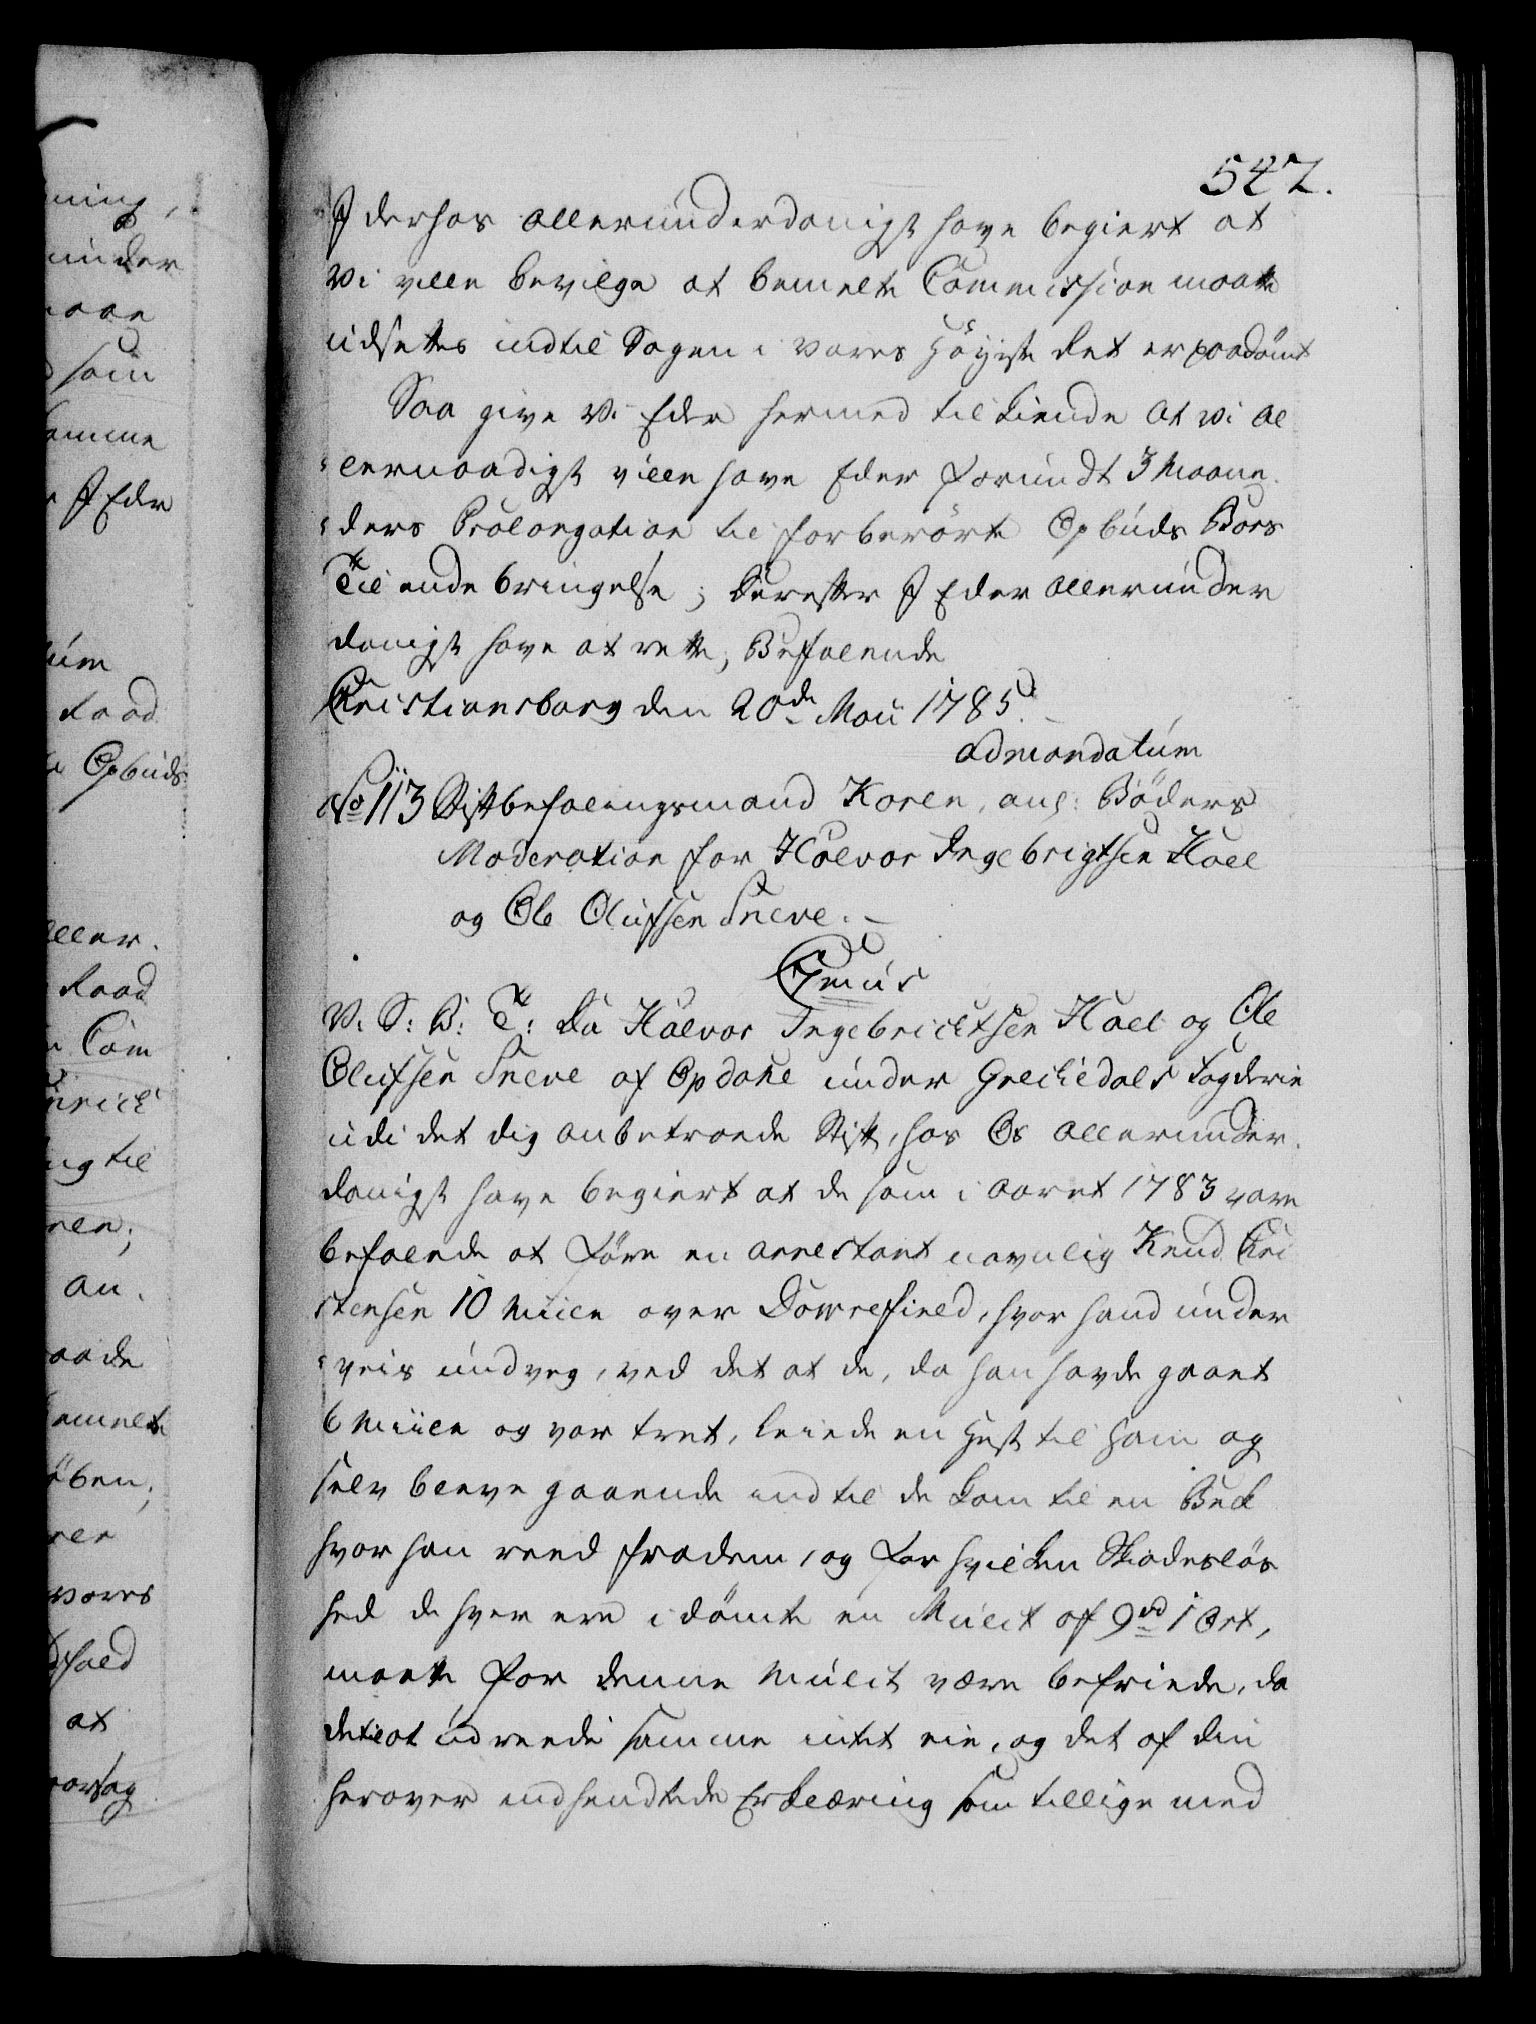 547.
I derhos allerunderdanigst have begiert at
Vi ville bevilge at bemelte Commission maatte
udsettes indtil Sagen i vores Høyeste Ret er paadømt
Saa give Vi Eder hermed tilkiende at vi al
lernaadigst ville have Eder forundt 3 Maane
ders Prolongation til forberørte Opbuds Boes
Tilendebringelse; derefter I Eder allerunder
danigst have at rette, Befalende
Christiansborg den 20de Maii 1785.
admandatum
No 113 Stiftbefalingsmand Koren, ang: Bøders
Moderation for Halvor Ingebrigtsen Hoel
og Ole Olufsen Sneve.
C7mus
V: S: B: T: Da Halvor Ingebrichtsen Hoel og Ole
Olufsen Sneve af Opdahl under Guldahls Fogderie
udi det dig anbetroede Stift, hos Os allerunder
danigst have begiert at de som i Aaret 1783 vare
befalede at føre en arrestant navnlig Knud Chri
stensen 10 Miile over Dowrefield, hvor hand under
veis undveg, ved det at de, da han havde gaaet
6 Miile og var træt, leiede en Hest til ham og
selv bleve gaaende indtil de kom til en Bæk
hvor han reed fra dem, og for hvilken Skiødesløs
hed de hver ere idømte en Mulct af 9 rd 1 Ort,
maatte for denne Mulct være befriede, da
de til at udreede samme intet eie, og det af din
herover indsendte Erklæring som tillige med